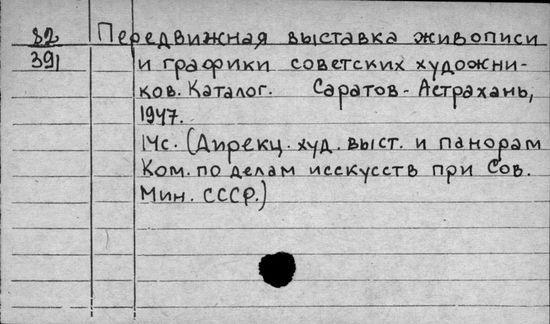 82 Передвижная выставка живописи
391 и графики советских художни-
ков. Каталог. Саратов-Астрахань,
1947.
14с. (Дирекц. худ. выст. и панорам
Ком. по делам исскусств при Сов.
Мин. СССР.)